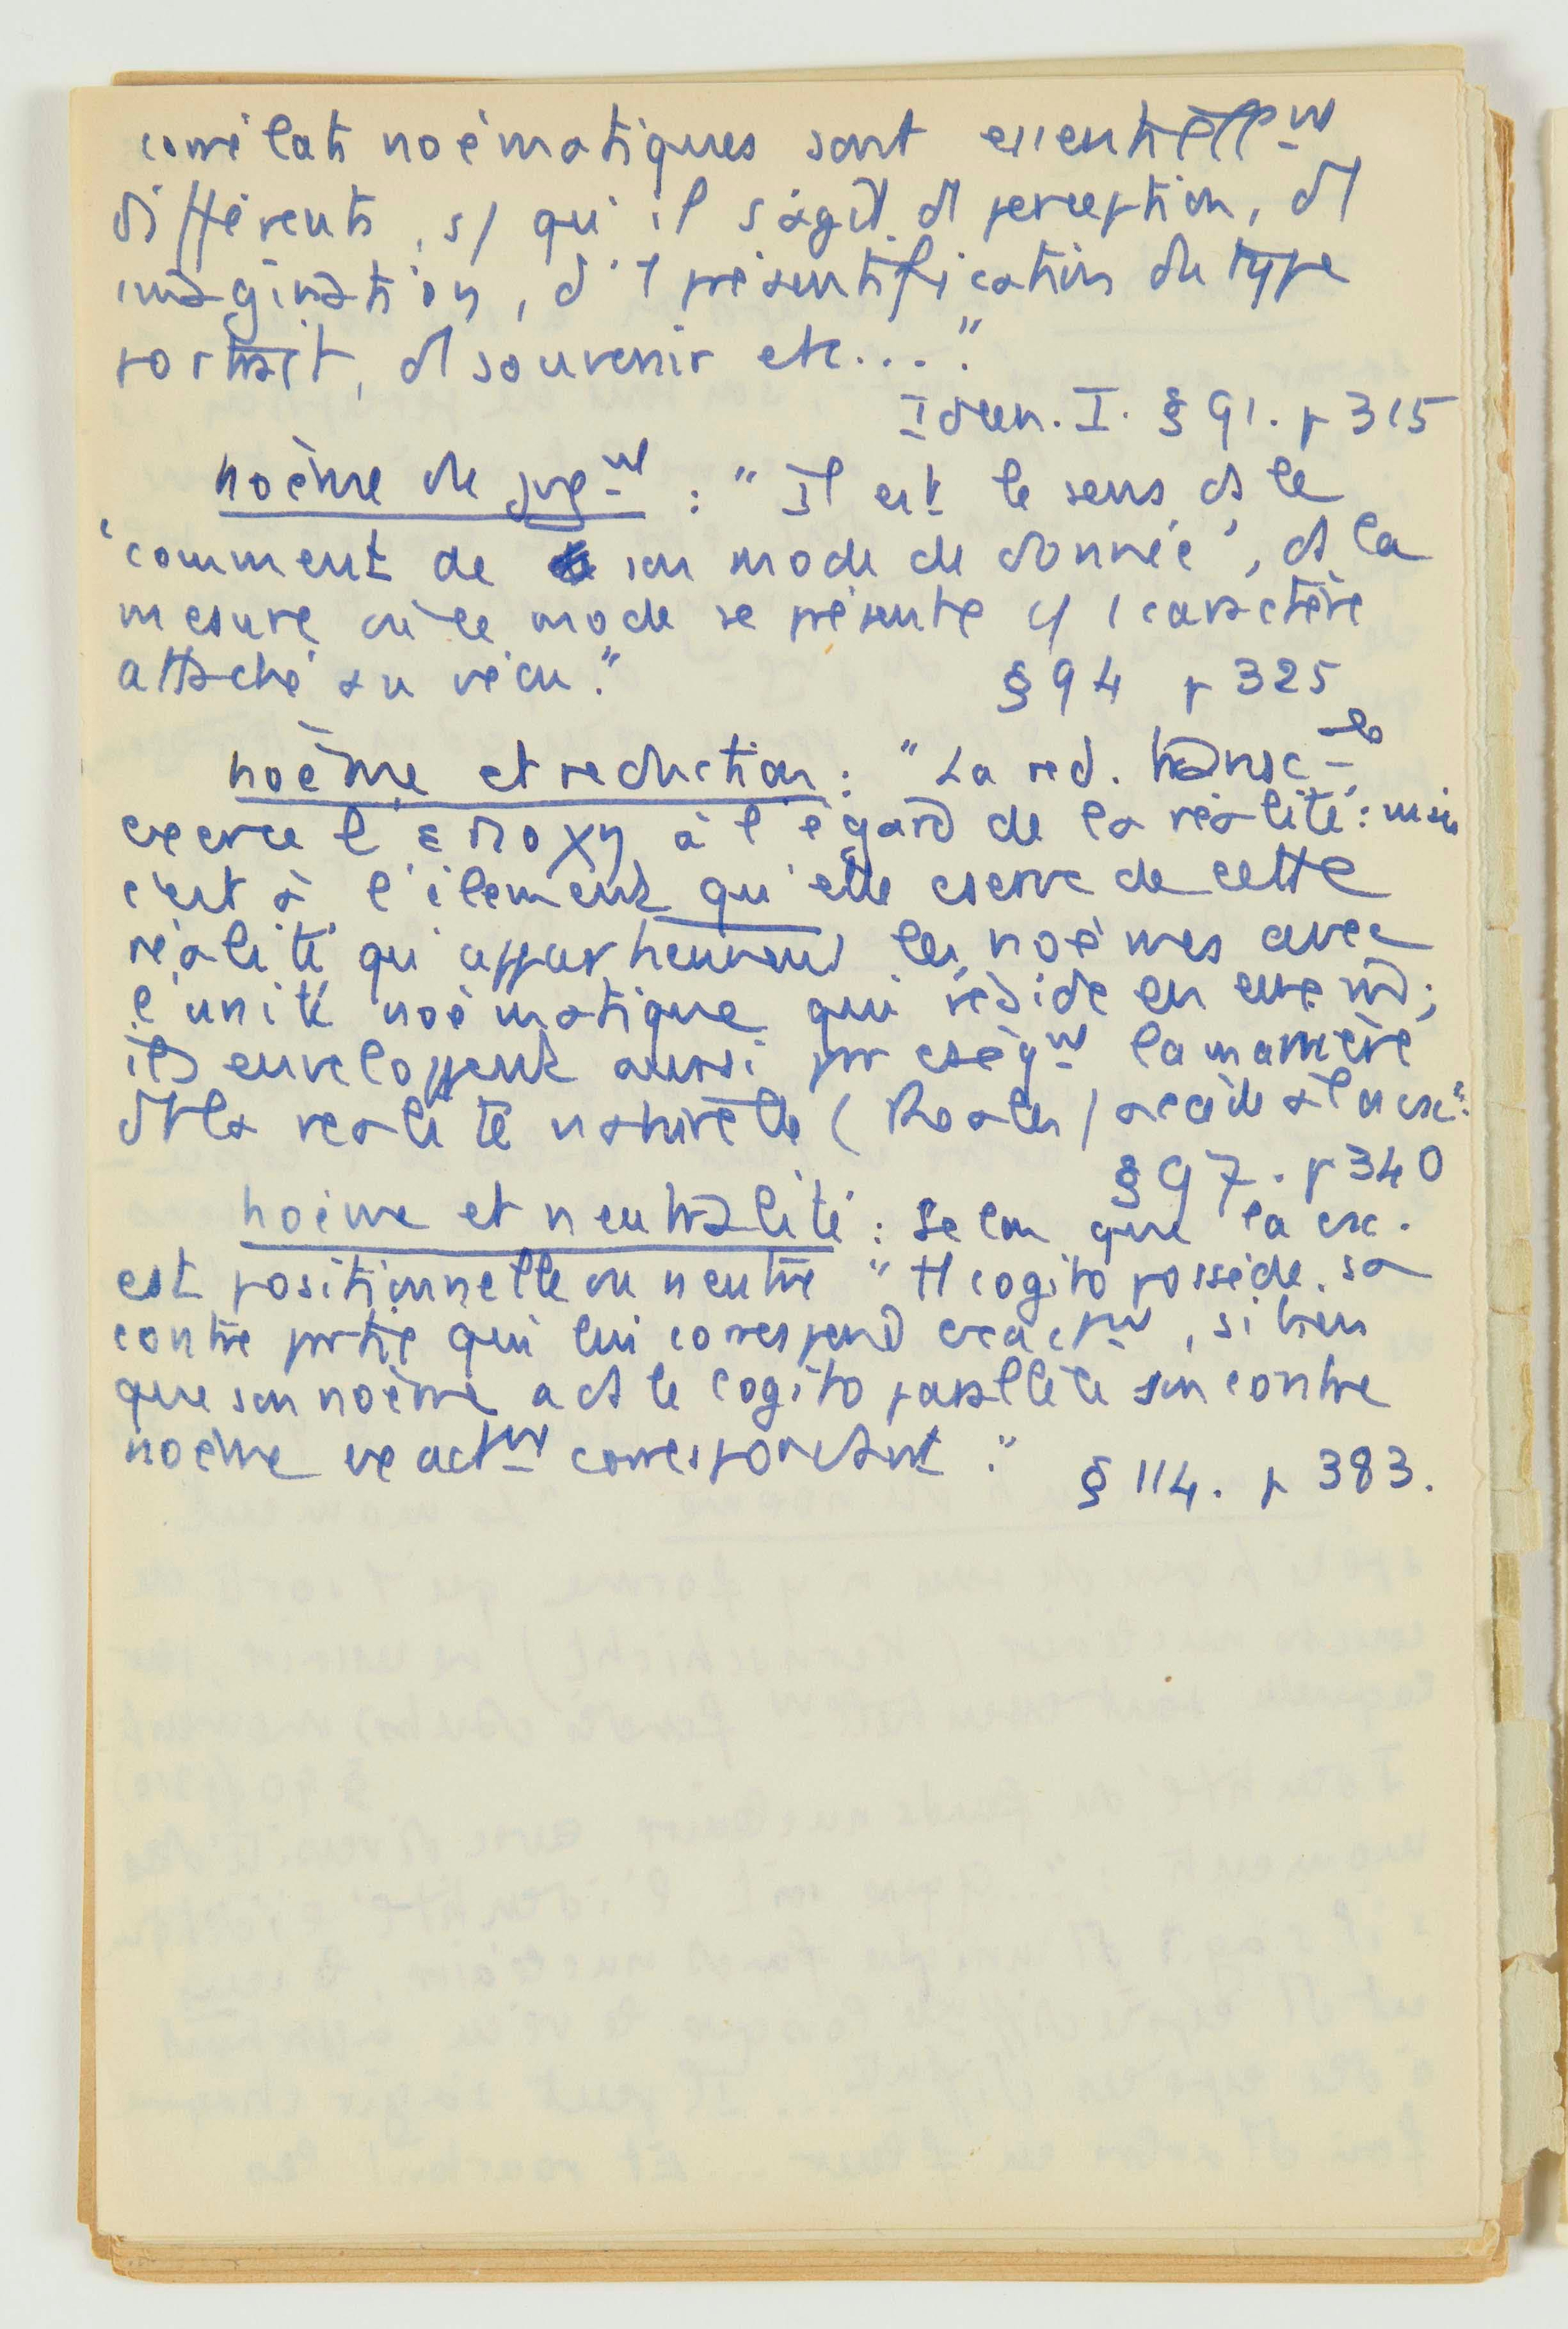 corrélats noématiques sont essentiellmt
différents, s/ qu'il s'agit d perception, d
imagination, d'1 présentification du type
portrait, d souvenir etc..."
Ideen. I. § 91. p 315
noème de jugmt : " Il est le sens ds le
'comment de son mode de donnée', ds la
mesure où ce mode se présente c/ 1 caractère
attaché au vécu."
§ 94 p 325
noème et reduction : " La red. transcle
exerce l' εποχη à l'égard de la réalité : mais
c'est à l'élement qu'elle conserve de cette
réalité qu'appartiennent les noèmes avec
l'unité noématique qui réside en eux
ils enveloppent aussi pr conséqmt la manière
dt la réalité naturelle ( Realen ) accède à la csc".
§ 97. p 340
noème et neutralité : Selon que la csc.
est positionnelle ou neutre " tt cogito possède sa
contre partie qui lui correspond exactmt, si bien
que son noème a ds le cogito parallèle son contre
noème exactmt correspondant."
§ 114. p 383.